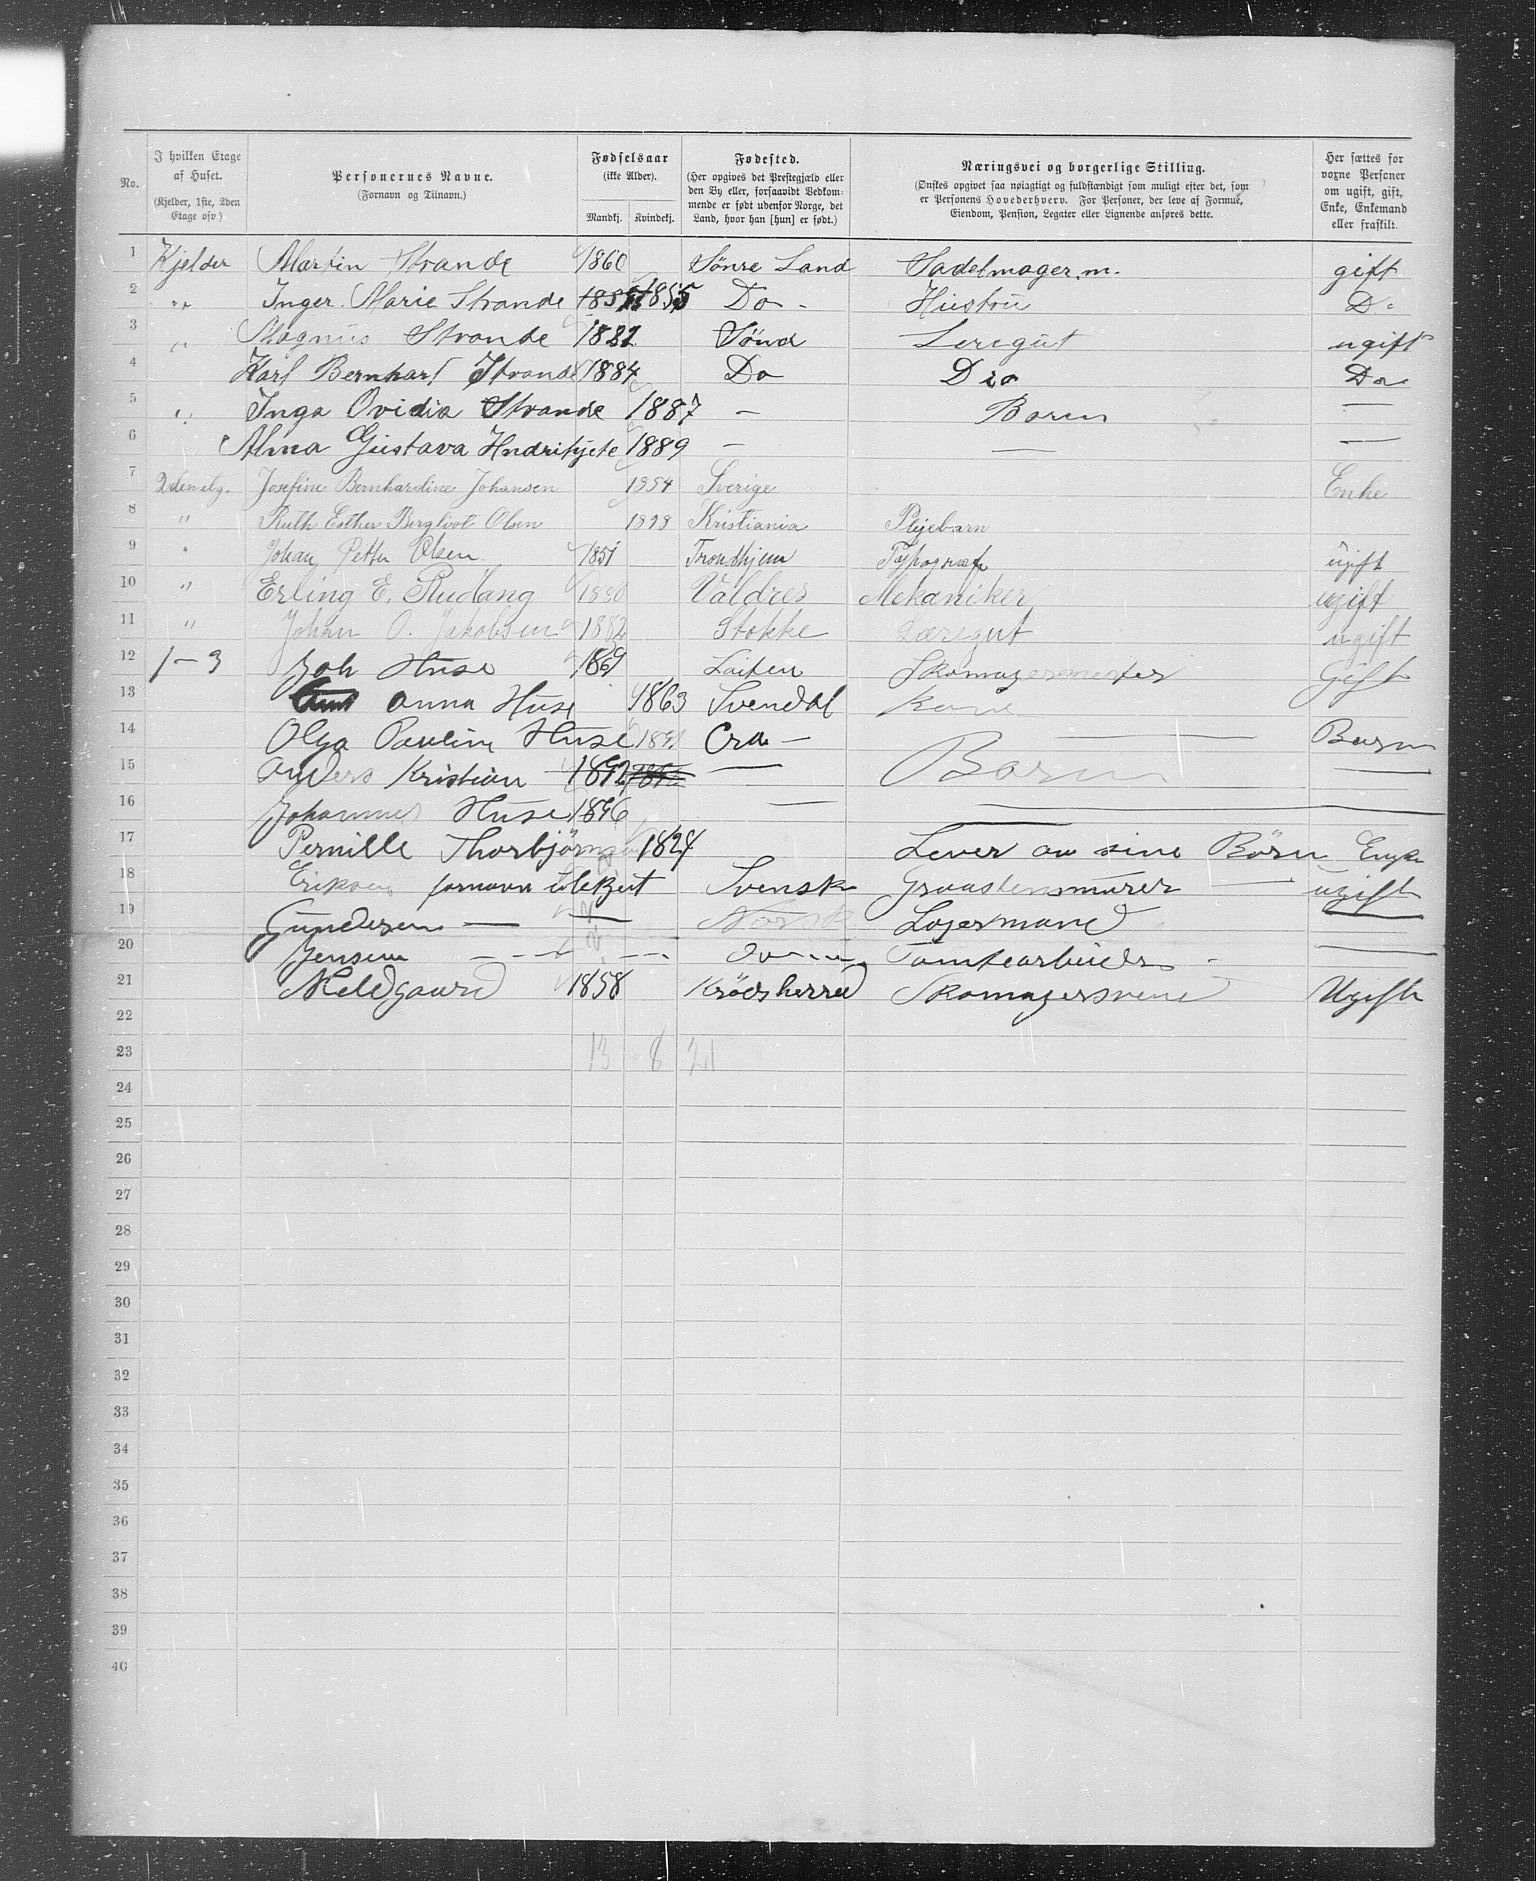 No.
I hvilken Etage af Huset. (Kjelder, 1ste, 2den Etage osv.)
Personernes Navne. (Fornavn og Tilnavn.)
Fødselsaar (ikke Alder). Mandkj. Kvindekj.
Fødested. (Her opgives det Prestegjæld eller den By eller, forsaavidt Vedkommende er født udenfor Norge, det Land, hvor han [hun] er født.)
Næringsvei og borgerlige Stilling. (Ønskes opgivet saa nøiagtigt og fuldstændigt som muligt efter det, som er Personens Hovederhverv. For Personer, der leve af Formue, Eiendom, Pension, Legater eller Lignende anføres dette.
Her sættes for voxne Personer om ugift, gift, Enke, Enkemand eller fraskilt.
1 Kjelder Martin Strande 1860 Søndre Land Sadelmager m. gift
2 " Inger Marie Strande 1855 Do - Hustru D-
3 " Magnus Strande 1882 Sønd Leregut ugift
4 Karl Bernhart Strande 1884 Do Dio Do
5 " Inga Ovidia Strande 1887 — Baren —
6 Alma Gustava 1889 — — —
7 2den etg. Josefine Bernhardine Johansen 1854 Sverige Enke
8 " Ruth Esther Bergliot Olsen 1898 Kristiania Plejebarn
9 " Johan Petter Olsen 1851 Trondhjem Typograf ugift
10 " Erling E. Rudang 1880 Valdres Mekaniker ugift
11 " Johan O. Jakobsen 1882 Stokke Læregut ugift
12 1-3 Joh Huse 1869 Løiten Skomagermester Gift
13 Anna Huse 1863 Svendal Kone
14 Olga Pauline Huse 1891 Cra — — Barn
15 Anders Kristian 1892 — Baren —
16 Johannes Huse 1896 — — —
17 Pernille Thorbjørnsen 1824 Lever av sine Børn Enke
18 Eriksen fornavn ubekjent Svensk Graastensmurer — ugift
19 Gundersen — — Norsk Logermand —
20 Jensen - - - - - Do Tomtearbeider - —
21 Meldgaard 1858 Krødsherred Skomagersvend Ugift
22
23 13 8 21
24
25
26
27
28
29
30
31
32
33
34
35
36
37
38
39
40